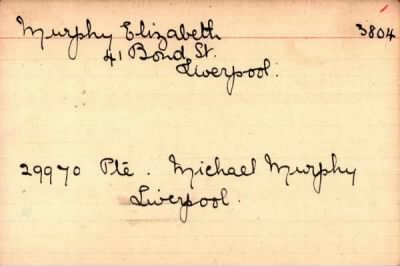 Murphy Elizabeth 3804
41 Bond St.
Liverpool.
29970 Pte. Michael Murphy
Liverpool.